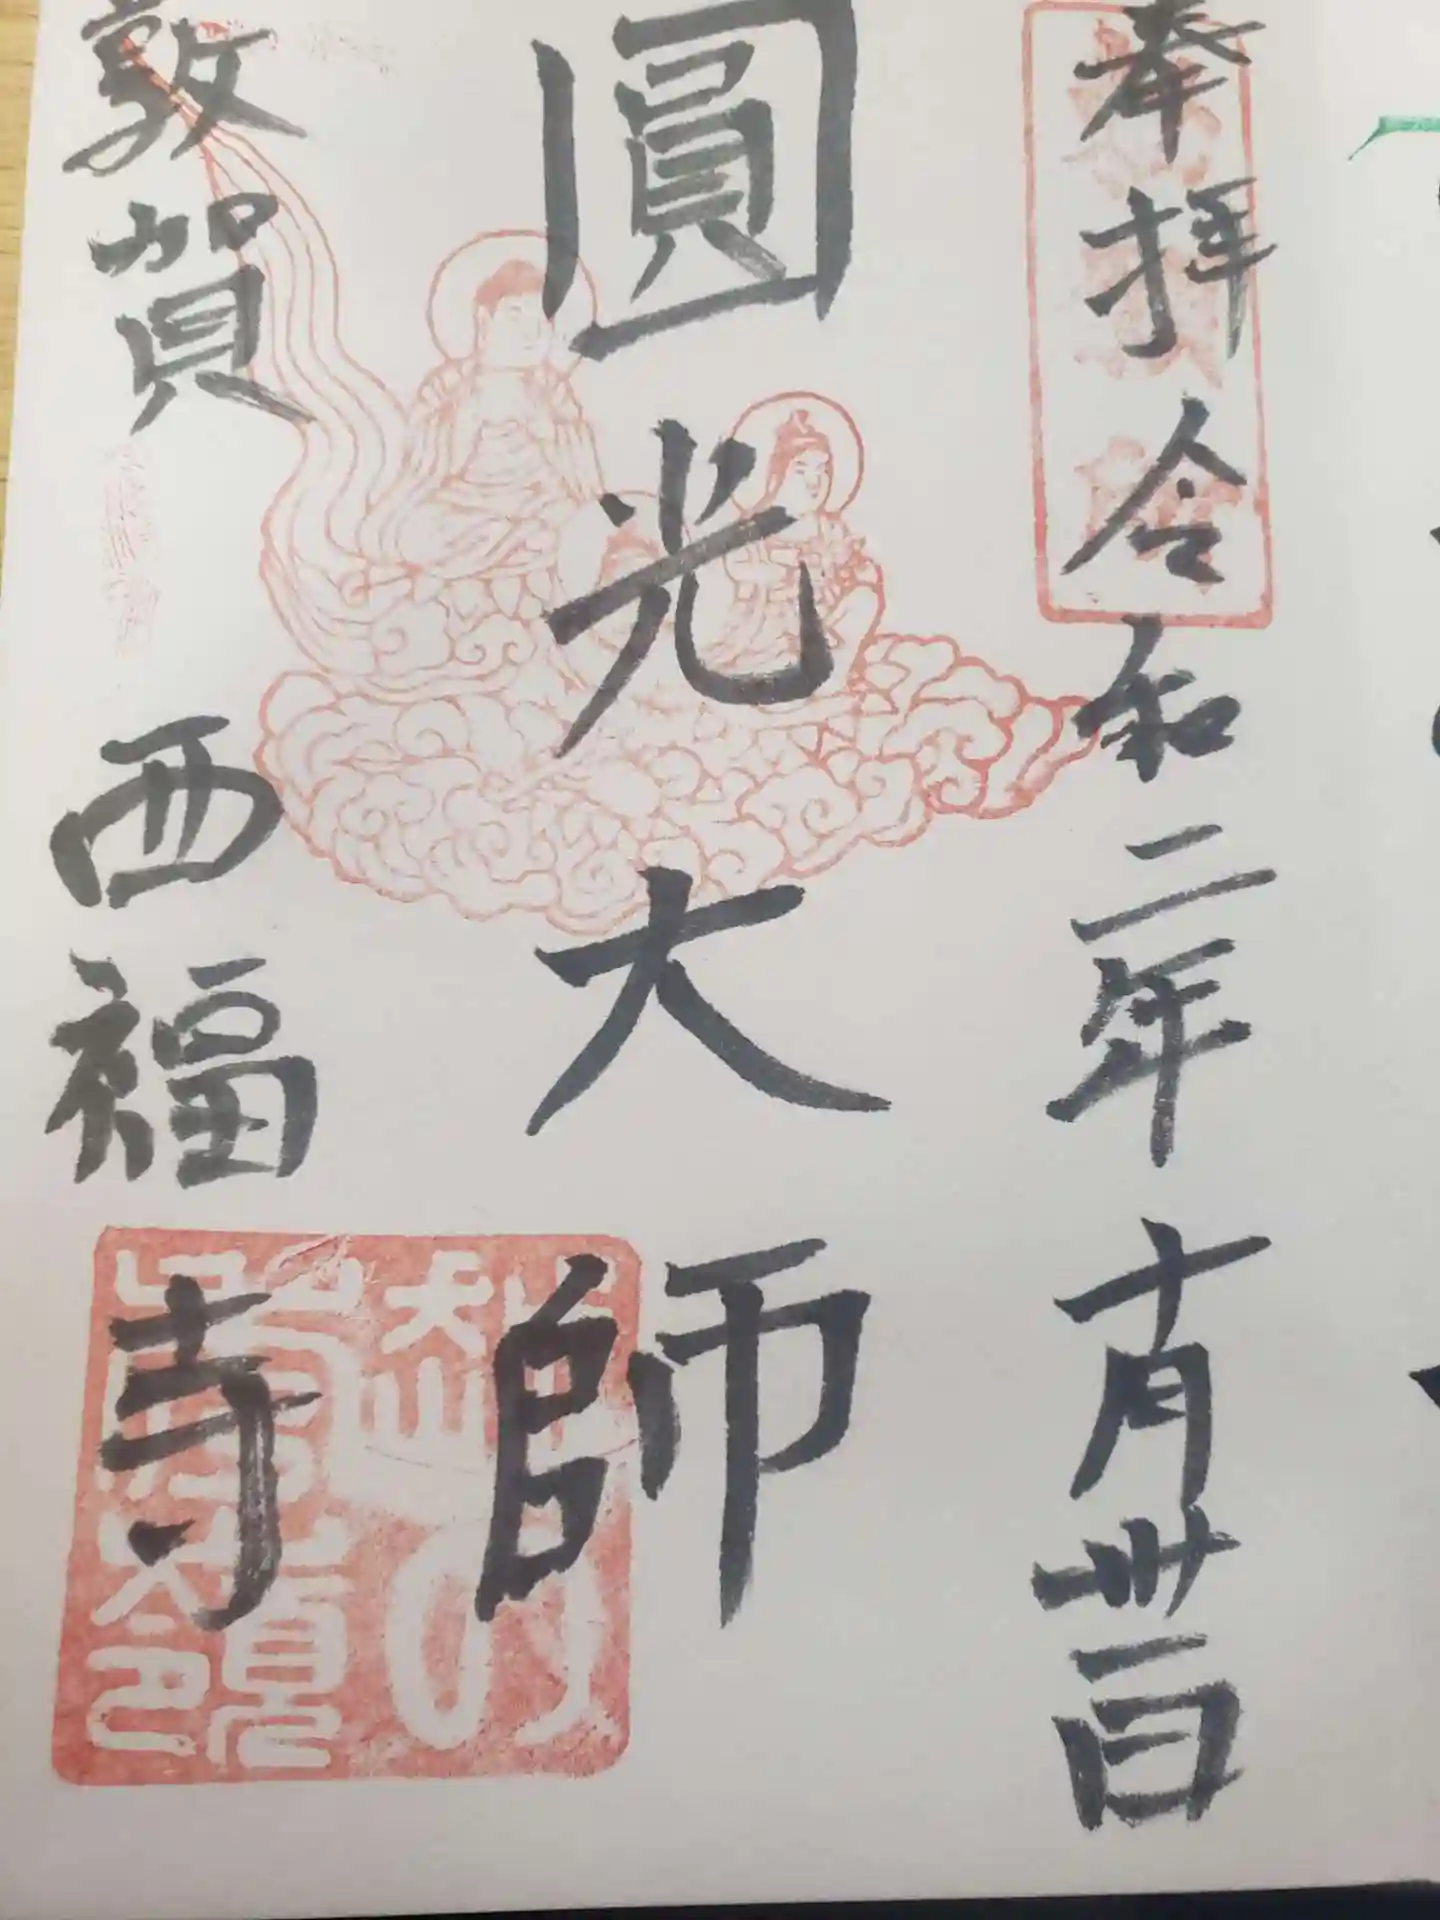 奉拝 令和二年十月卅一日
圓光大師
敦賀 西福寺